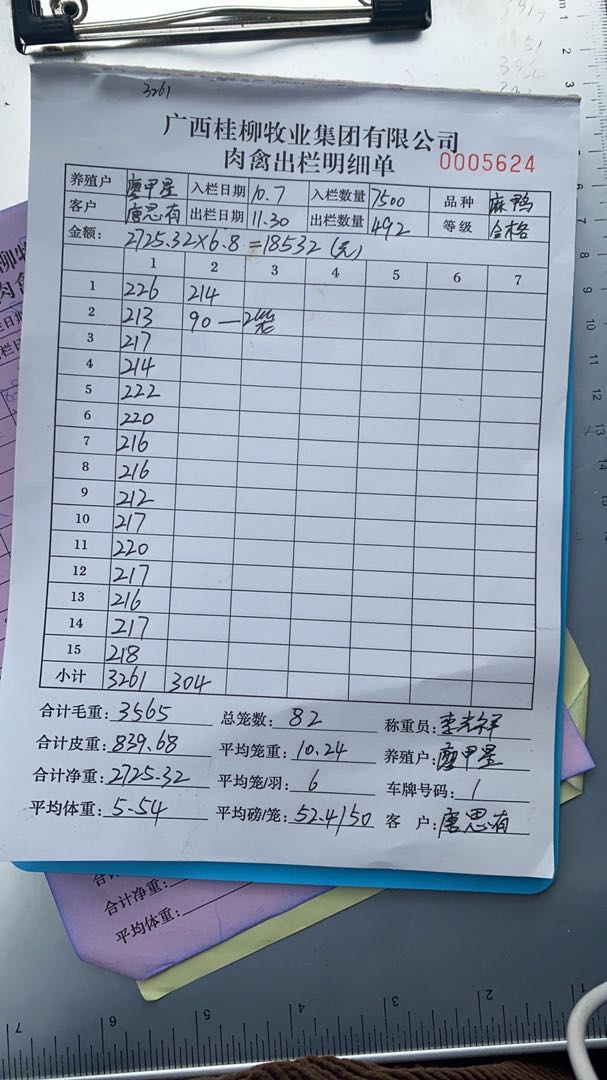 3261
广西桂柳牧业集团有限公司
肉禽出栏明细单 0005624
养殖户 廖甲星 入栏日期 10.7 入栏数量 7500 品种 麻鸭
客户 唐思有 出栏日期 11.30 出栏数量 492 等级 合格
金额: 2725.32×6.8=18532(元)
1 2 3 4 5 6 7
1 226 214
2 213 90—2笼
3 217
4 214
5 222
6 220
7 216
8 216
9 212
10 217
11 220
12 217
13 216
14 217
15 218
小计 3261 304
合计毛重: 3565 总笼数: 82 称重员: 李光祥
合计皮重: 839.68 平均笼重: 10.24 养殖户: 廖甲星
合计净重: 2725.32 平均笼/羽: 6 车牌号码: 1
平均体重: 5.54 平均磅/笼: 52.4/50 客 户: 唐思有
合计净重:
平均体重: